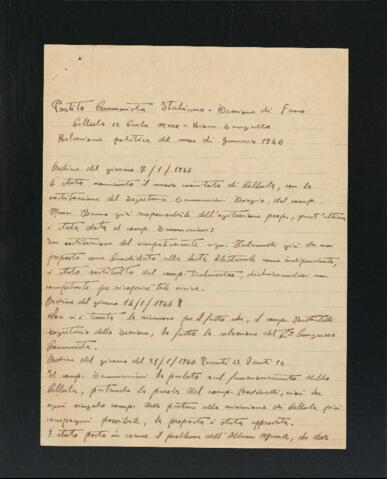 Partito Comunista Italiano - Sezione di Fano
Cellula 12 Carlo Marx -
Relazione politica del mese di Gennaio 1946
Ordine del giorno 7/1/1946
È stato nominato il nuovo comitato di Cellula, con la
sostituzione del Segretario Biagio, del comp.
già responsabile dell'agitazione prop.,
è stata data al comp.
In sostituzione del simpatizzante sign. già da noi
proposto come candidato alla lista elettorale come indipendente,
è stato sostituito dal comp. dichiarandosi non
competente per ricoprire tale carica.
Ordine del giorno 14/1/1946
Non si è tenuta la riunione per il fatto che, il comp.
Segretario della Sezione, ha fatto la relazione del Congresso
Comunista.
Ordine del giorno del 28/1/1946 22
Il comp. ha parlato sul funzionamento della
Cellula, portando la parola del comp. cioè che
ogni singolo comp. deve portare alla riunione di Cellula più
compagni possibile, la proposta è stata approvata.
È stato posto in esame il problema dell'Album Murale, che deve